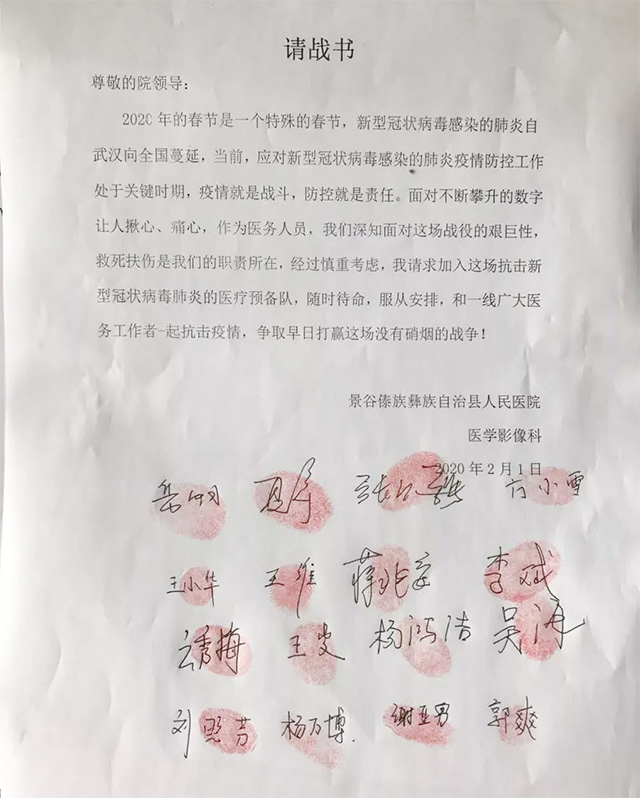 请战书
尊敬的院领导：
2020年的春节是一个特殊的春节，新型冠状病毒感染的肺炎自
武汉向全国蔓延，当前，应对新型冠状病毒感染的肺炎疫情防控工作
处于关键时期，疫情就是战斗，防控就是责任。面对不断攀升的数字
让人揪心、痛心，作为医务人员，我们深知面对这场战役的艰巨性，
救死扶伤是我们的职责所在，经过慎重考虑，我请求加入这场抗击新
型冠状病毒肺炎的医疗预备队，随时待命，服从安排，和一线广大医
务工作者一起抗击疫情，争取早日打赢这场没有硝烟的战争！
景谷傣族彝族自治县人民医院
医学影像科
2020年2月1日
方小雪
王小华 王维 李斌
杨鸿洁 吴海
杨万博 谢亚男 郭爽